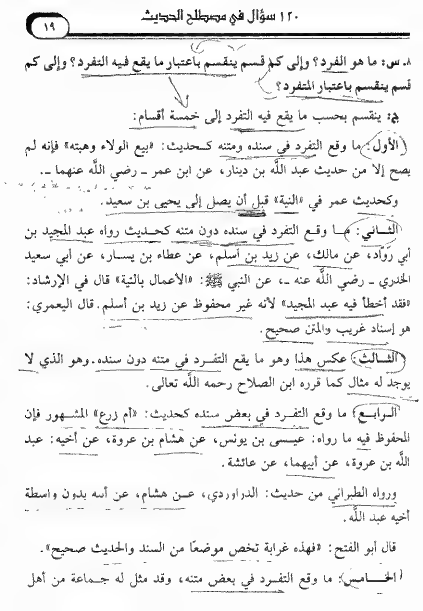 ١٢٠ سؤال في مصطلح الحديث
١٩
٨. س: ما هو الفرد؟ وإلى كم قسم ينقسم باعتبار ما يقع فيه التفرد؟ وإلى كم
قسم ينقسم باعتبار المتفرد؟
ج: ينقسم بحسب ما يقع فيه التفرد إلى خمسة أقسام:
الأول: ما وقع التفرد في سنده ومتنه كحديث: «بيع الولاء وهبته» فإنه لم
يصح إلا من حديث عبد الله بن دينار، عن ابن عمر ـ رضي الله عنهما ـ.
وكحديث عمر في «النية» قبل أن يصل إلى يحيى بن سعيد.
الثاني: ما وقع التفرد في سنده دون متنه كحديث رواه عبد المجيد بن
أبي روّاد، عن مالك، عن زيد بن أسلم، عن عطاء بن يسار، عن أبي سعيد
الخدري ـ رضي الله عنه ـ، عن النبي ﷺ: «الأعمال بالنية» قال في الإرشاد:
«فقد أخطأ فيه عبد المجيد» لأنه غير محفوظ عن زيد بن أسلم. قال اليعمري:
هو إسناد غريب والمتن صحيح.
الثالث: عكس هذا وهو ما يقع التفرد في متنه دون سنده. وهو الذي لا
يوجد له مثال كما قرره ابن الصلاح رحمه الله تعالى.
الرابع: ما وقع التفرد في بعض سنده كحديث: «أم زرع» المشهور فإن
المحفوظ فيه ما رواه: عيسى بن يونس، عن هشام بن عروة، عن أخيه: عبد
الله بن عروة، عن أبيهما، عن عائشة.
ورواه الطبراني من حديث: الدراوردي، عن هشام، عن أبيه بدون واسطة
أخيه عبد الله.
قال أبو الفتح: «فهذه غرابة تخص موضعًا من السند والحديث صحيح».
الخامس: ما وقع التفرد في بعض متنه، وقد مثل له جماعة من أهل